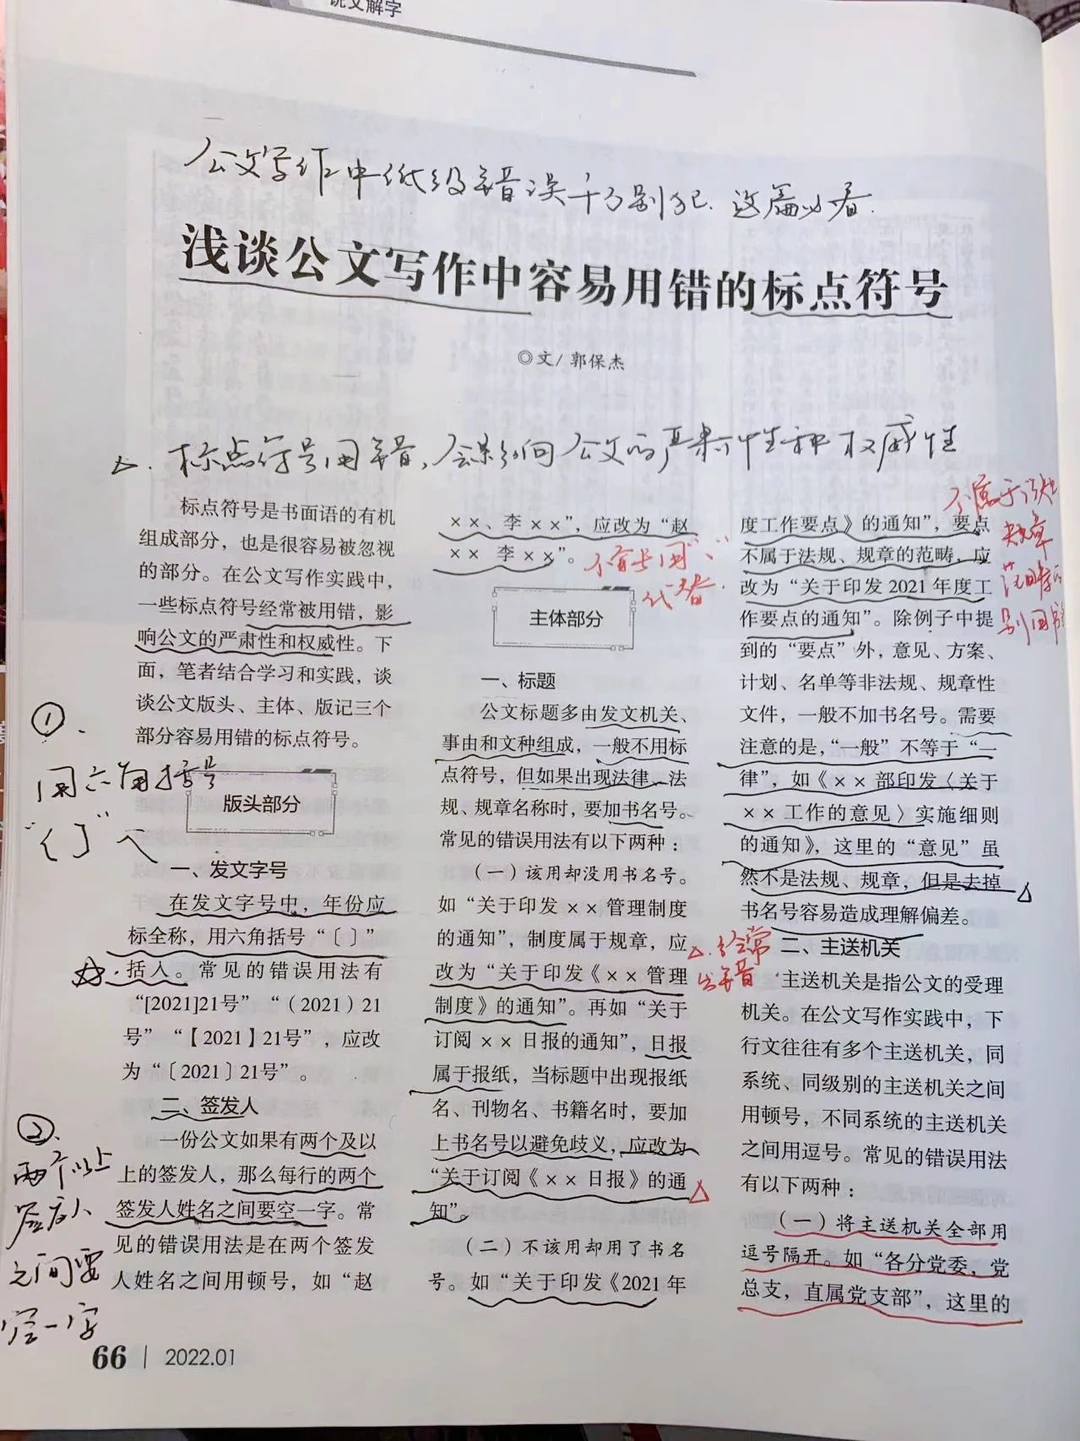 说文解字
公文写作中低级错误千万别犯.这篇必看.
浅谈公文写作中容易用错的标点符号
◎文/郭保杰
△.标点符号用错,会影响公文的严肃性和权威性
标点符号是书面语的有机
组成部分，也是很容易被忽视
的部分。在公文写作实践中，
一些标点符号经常被用错，影
响公文的严肃性和权威性。下
面，笔者结合学习和实践，谈
谈公文版头、主体、版记三个
部分容易用错的标点符号。
①.
用六角括号
“〔〕”入
版头部分
一、发文字号
在发文字号中，年份应
标全称，用六角括号“〔〕”
括入。常见的错误用法有
“[2021]21号”“（2021）21
号”“【2021】21号”，应改
为“〔2021〕21号”。
二、签发人
一份公文如果有两个及以
上的签发人，那么每行的两个
签发人姓名之间要空一字。常
见的错误用法是在两个签发
人姓名之间用顿号，如“赵
②.
两个以上
签发人
之间要
空一字
××、李××”，应改为“赵
××　李××”。
代替.
主体部分
一、标题
公文标题多由发文机关、
事由和文种组成，一般不用标
点符号，但如果出现法律、法
规、规章名称时，要加书名号。
常见的错误用法有以下两种：
（一）该用却没用书名号。
如“关于印发××管理制度
的通知”，制度属于规章，应
改为“关于印发《××管理
制度》的通知”。再如“关于
订阅××日报的通知”，日报
属于报纸，当标题中出现报纸
名、刊物名、书籍名时，要加
上书名号以避免歧义，应改为
“关于订阅《××日报》的通
知”。
（二）不该用却用了书名
号。如“关于印发《2021年
度工作要点》的通知”，要点
不属于法规、规章的范畴，应
改为“关于印发2021年度工
作要点的通知”。除例子中提
到的“要点”外，意见、方案、
计划、名单等非法规、规章性
文件，一般不加书名号。需要
注意的是，“一般”不等于“一
律”，如《××部印发〈关于
××工作的意见〉实施细则
的通知》，这里的“意见”虽
然不是法规、规章，但是去掉
书名号容易造成理解偏差。
不属于法规
规章
范畴的
别用书名
△.经常
出错
二、主送机关
主送机关是指公文的受理
机关。在公文写作实践中，下
行文往往有多个主送机关，同
系统、同级别的主送机关之间
用顿号，不同系统的主送机关
之间用逗号。常见的错误用法
有以下两种：
（一）将主送机关全部用
逗号隔开。如“各分党委，党
总支，直属党支部”，这里的
66 | 2022.01